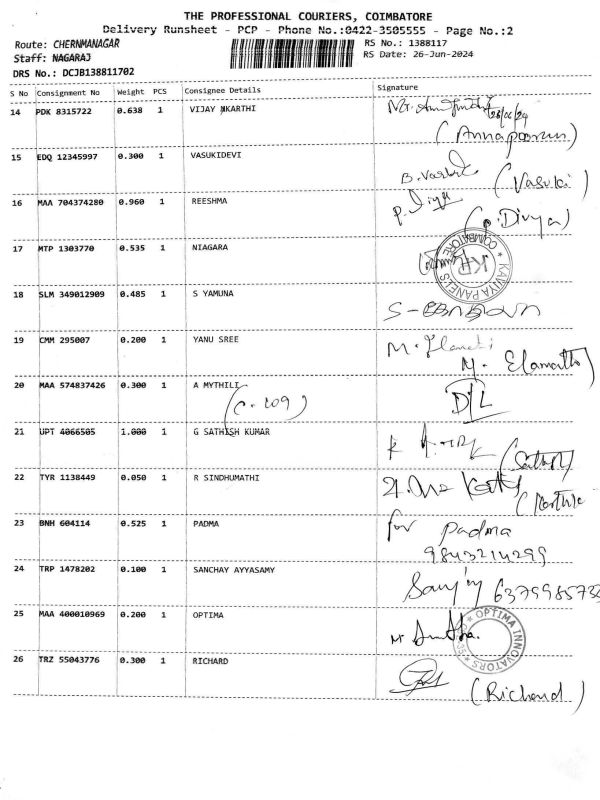 THE PROFESSIONAL COURIERS, COIMBATORE
Delivery Runsheet - PCP - Phone No.:0422-3505555 - Page No.:2
Route: CHERNMANAGAR
RS No.: 1388117
Staff: NAGARAJ
RS Date: 26-Jun-2024
DRS No.: DCJB138811702
S No Consignment No Weight PCS Consignee Details Signature
14 PDK 8315722 0.638 1 VIJAY KARTHI
26/06/24
(Annapoorun)
15 EDQ 12345997 0.300 1 VASUKIDEVI
B. (Vasuki)
16 MAA 704374280 0.960 1 REESHMA
P. Divya
(P. Divya)
17 MTP 1303770 0.535 1 NIAGARA
KAVIYA PANELS * COIMBATORE * KP
18 SLM 349012909 0.485 1 S YAMUNA
S -
19 CMM 295007 0.200 1 YANU SREE
M.
M.
20 MAA 574837426 0.300 1 A MYTHILI
(C-109) D/L
21 UPT 4066505 1.000 1 G SATHISH KUMAR
K
22 TYR 1138449 0.050 1 R SINDHUMATHI
23 BNH 604114 0.525 1 PADMA
for Padma
9843214299
24 TRP 1478202 0.100 1 SANCHAY AYYASAMY
25 MAA 400010969 0.200 1 OPTIMA
* OPTIMA INNOVATORS *
26 TRZ 55043776 0.300 1 RICHARD
(Richard)